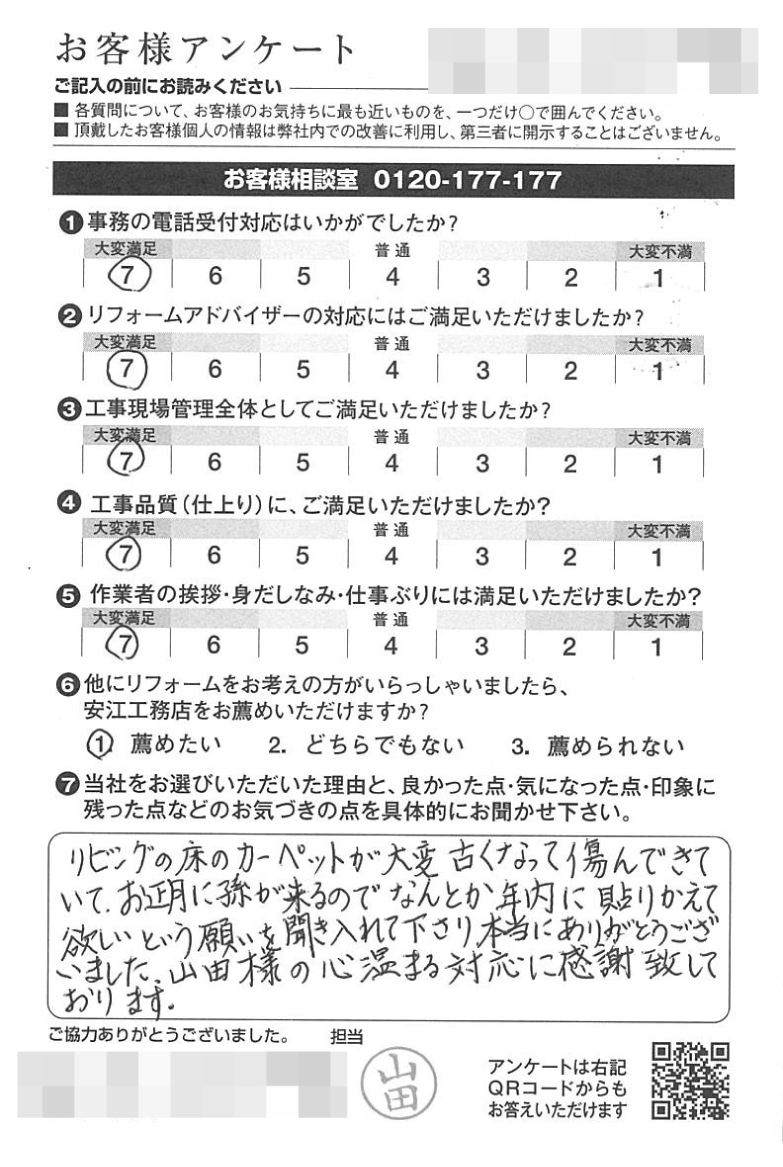 お客様アンケート
ご記入の前にお読みください
■ 各質問について、お客様のお気持ちに最も近いものを、一つだけ○で囲んでください。
■ 頂戴したお客様個人の情報は弊社内での改善に利用し、第三者に開示することはございません。
お客様相談室 0120-177-177
❶事務の電話受付対応はいかがでしたか?
大変満足 普通 大変不満
7 6 5 4 3 2 1
❷リフォームアドバイザーの対応にはご満足いただけましたか?
大変満足 普通 大変不満
7 6 5 4 3 2 1
❸工事現場管理全体としてご満足いただけましたか?
大変満足 普通 大変不満
7 6 5 4 3 2 1
❹工事品質(仕上り)に、ご満足いただけましたか?
大変満足 普通 大変不満
7 6 5 4 3 2 1
❺作業者の挨拶・身だしなみ・仕事ぶりには満足いただけましたか?
大変満足 普通 大変不満
7 6 5 4 3 2 1
❻他にリフォームをお考えの方がいらっしゃいましたら、
安江工務店をお薦めいただけますか?
1. 薦めたい 2. どちらでもない 3. 薦められない
❼当社をお選びいただいた理由と、良かった点・気になった点・印象に
残った点などのお気づきの点を具体的にお聞かせ下さい。
リビングの床のカーペットが大変古くなって傷んできて
いて、お正月に孫が来るのでなんとか年内に貼りかえて
欲しいという願いを聞き入れて下さり、本当にありがとうござ
いました。山田様の心温まる対応に感謝致して
おります。
ご協力ありがとうございました。 担当
山田
アンケートは右記
QRコードからも
お答えいただけます